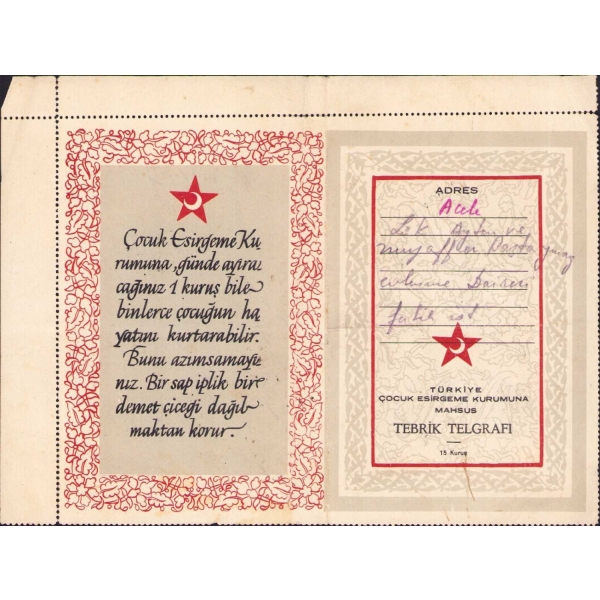 Çocuk Esirgeme Ku
rumuna, günde ayıra
cağınız 1 kuruş bile
binlerce çocuğun ha
yatını kurtarabilir.
Bunu azımsamayı
nız. Bir sap iplik bir
demet çiçeği dağıl
maktan korur.
ADRES
Acele
Ayten ve
evlenme Dairesi
fatih ist
TÜRKİYE
ÇOCUK ESİRGEME KURUMUNA
MAHSUS
TEBRİK TELGRAFI
15 Kuruş